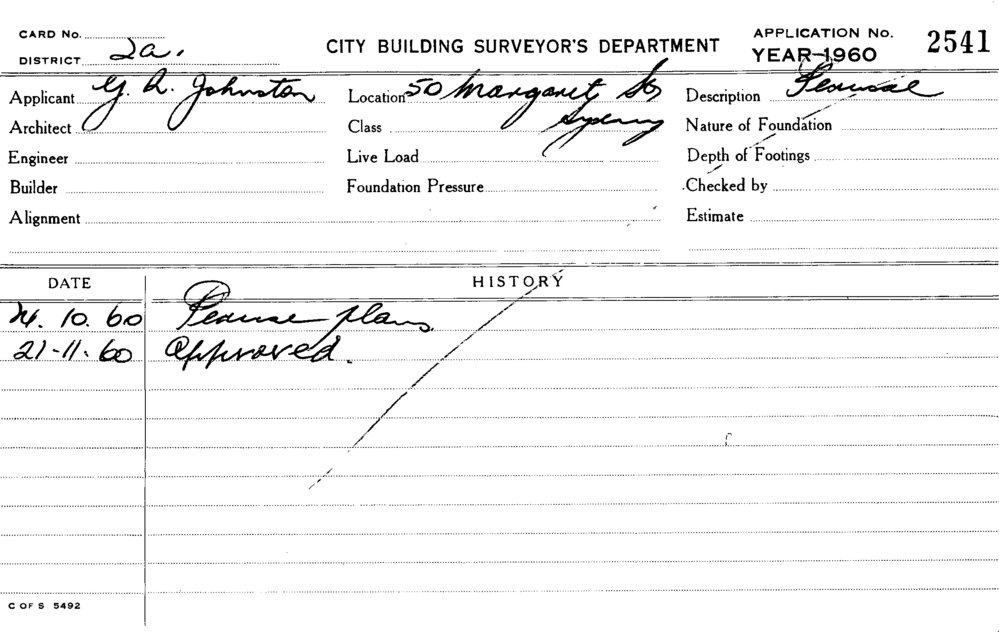 CARD No.
DISTRICT 2a.
CITY BUILDING SURVEYOR'S DEPARTMENT
APPLICATION No. 2541
YEAR—1960
Applicant G. R. Johnston
Location 50 Margaret St
Sydney
Description Perusal
Architect
Class
Nature of Foundation
Engineer
Live Load
Depth of Footings
Builder
Foundation Pressure
Checked by
Alignment
Estimate
DATE
HISTORY
10. 60 Peruse plans.
21-11-60 Approved.
C OF S 5492